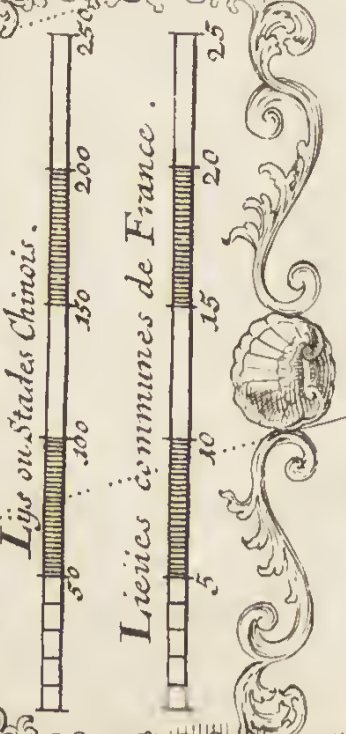 Lÿs ou Stades Chinois.
50 100 150 200 250
Lieües communes de France.
5 10 15 20 25